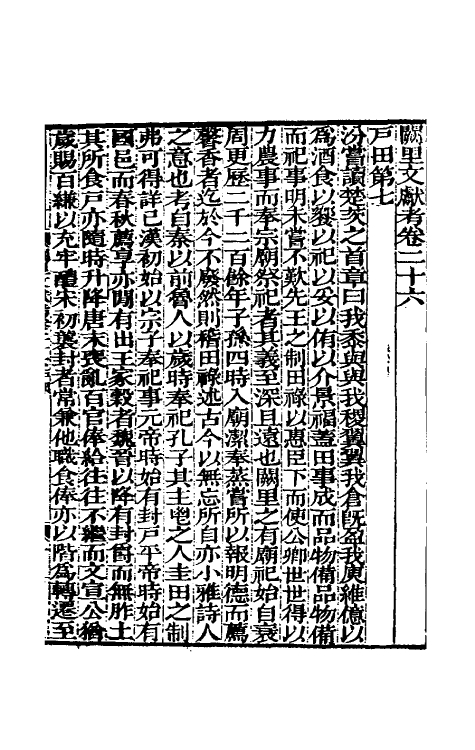 闕里文獻考卷二十六
戸田第七
汾嘗讀楚茨之首章曰我黍與與我稷翼翼我倉旣盈我庾維億以
爲酒食以饗以祀以妥以侑以介景福蓋田事成而品物備品物備
而祀事明未嘗不歎先王之制田祿以惠臣下而使公卿世世得以
力農事而奉宗廟祭祀者其義至深且遠也闕里之有廟祀始自哀
周更歷二千二百餘年子孫四時入廟潔奉蒸嘗所以報明德而薦
馨香者迄於今不廢然則稽田祿述古今以無忘所自亦小雅詩人
之意也考自秦以前魯人以歲時奉祀孔子其主鬯之人圭田之制
弗可得詳已漢初始以宗子奉祀事元帝時始有封戸平帝時始有
國邑而春秋薦享亦閒有出王家穀者魏晉以降有封爵而無胙土
其所食戸亦隨時升降唐末喪亂百官俸給往往不繼而文宣公猶
歲賜百縑以充牢醴宋初襲封者常兼他職食俸亦以階爲轉遷至